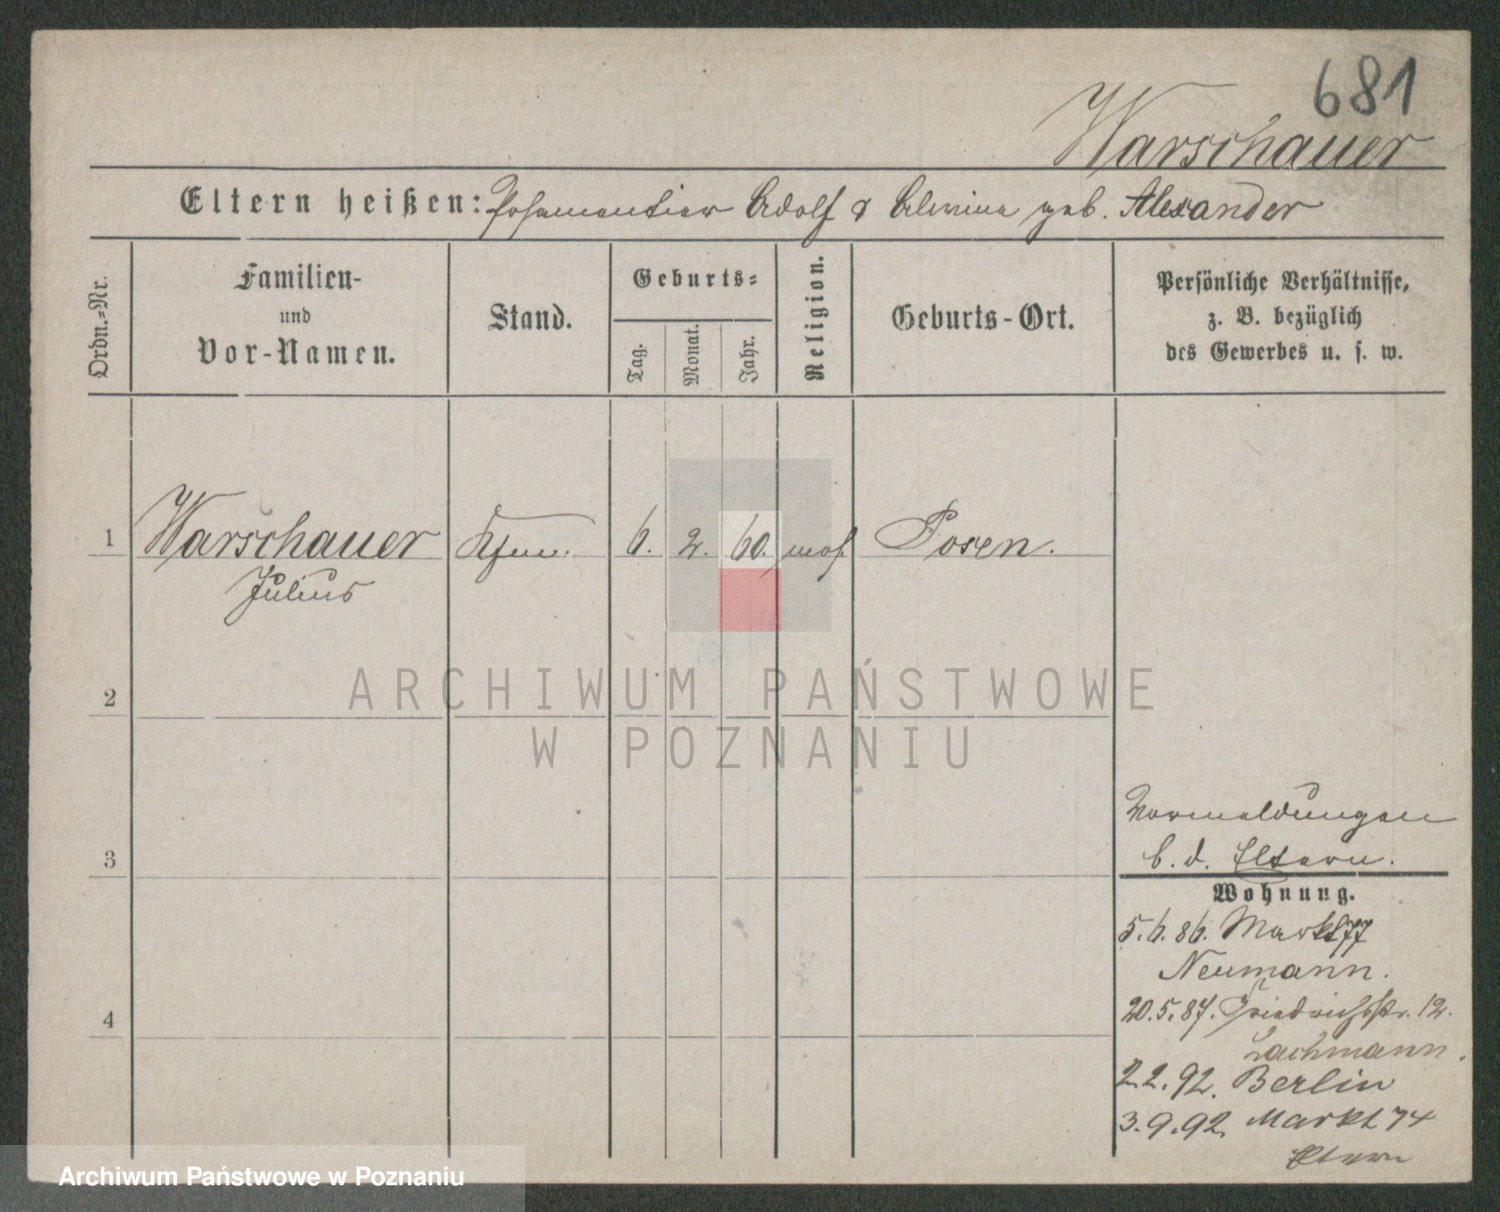 681
Warschauer
Eltern heißen: Posamentier Adolf & Alwine geb. Alexander
Ordn.=Nr.
Familien-
und
Vor-Namen.
Stand.
Geburts=
Tag.
Monat.
Jahr.
Religion.
Geburts-Ort.
Persönliche Verhältnisse,
z. B. bezüglich
des Gewerbes u. s. w.
1 Warschauer Kfm. 6. 2. 60. mos. Posen.
Julius
ARCHIWUM PAŃSTWOWE
W POZNANIU
2
3
4
Vormeldungen
b. d. Eltern.
Wohnung.
5.6.86. Markt 77
Neumann.
20.5.87. Friedrichstr. 12.
Lachmann.
2.2.92. Berlin
3.9.92. Markt 74
Eltern
Archiwum Państwowe w Poznaniu